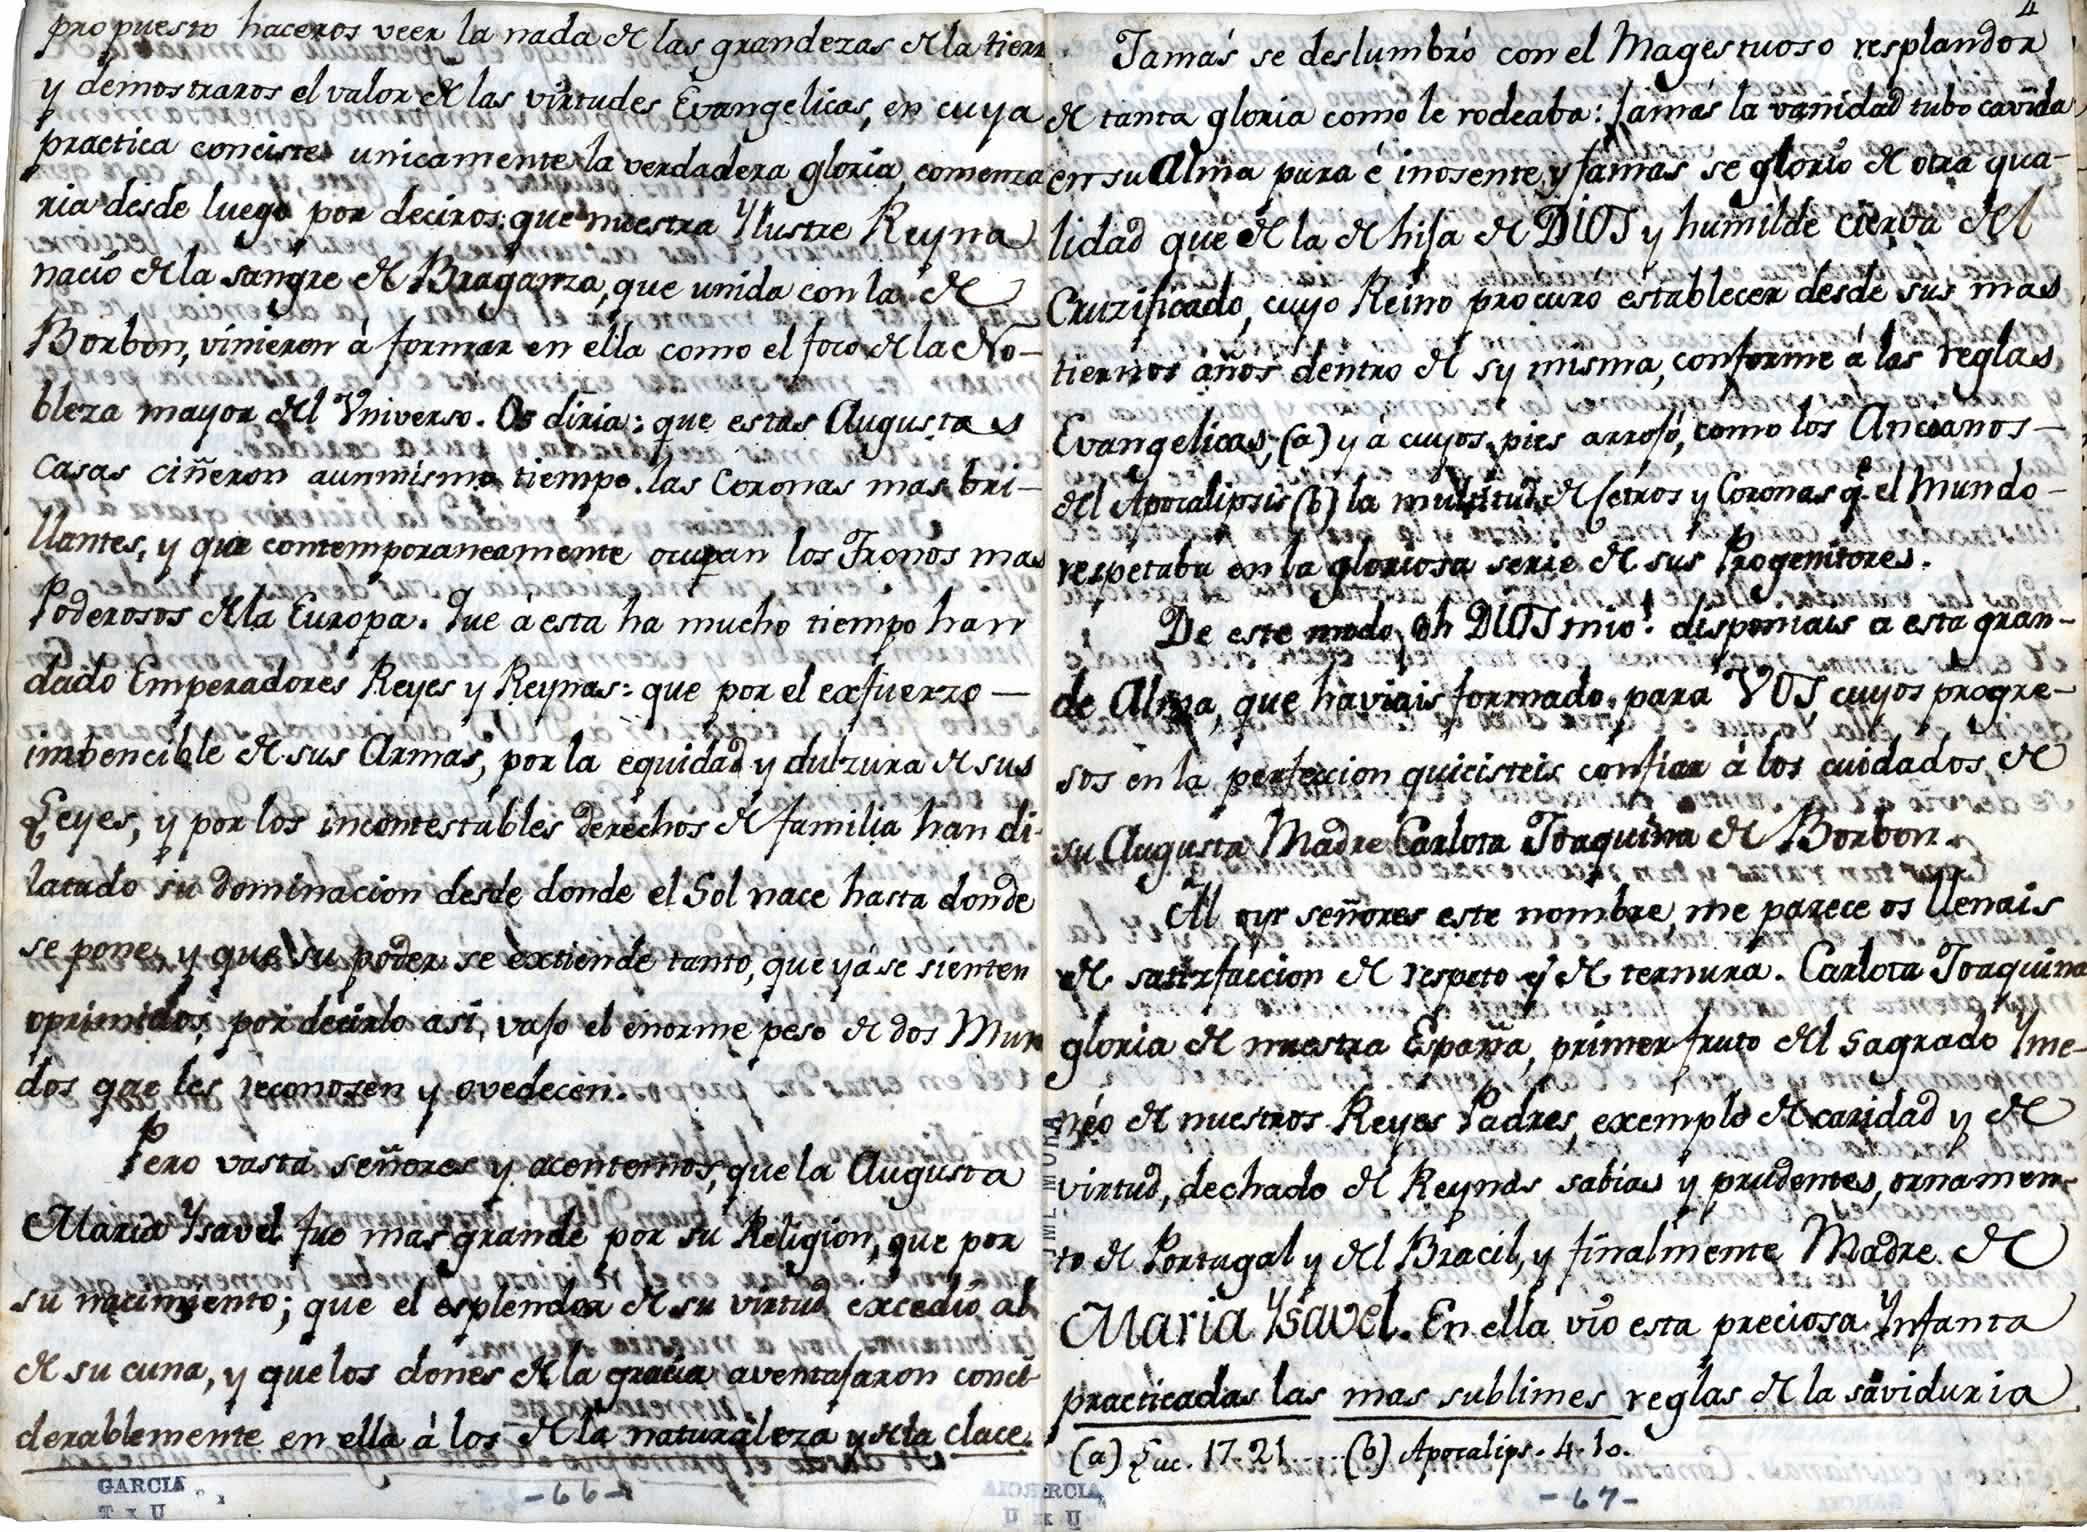 propuesto haceros veer la nada de las grandezas de la tierr
y demostraros el valor de las virtudes Evangelicas, en cuya
practica conciste unicamente la verdadera gloria, comenza
ria desde luego por deciros: que nuestra Ylustre Reyna
nació de la sangre de Braganza, que unida con la de
Borbon, vinieron à formar en ella como el foco de la No-
bleza mayor del Vniverso. Os diria: que estas Augustas
casas ciñeron aunmismo tiempo las Coronas mas bri-
llantes, y que contemporaneamente ocupan los Tronos mas
Poderosos de la Europa. Que à esta ha mucho tiempo han
dado Emperadores Reyes y Reynas: que por el exfuerzo —
imbencible de sus Armas, por la equidad y dulzura de sus
Leyes, y por los incontestables derechos de familia han di-
latado su dominacion desde donde el Sol nace hasta donde
se pone, y que su poder se extiende tanto, que yá se sienten
oprimidos, por decirlo asi, vajo el enorme peso de dos Mun
dos que les reconosen y ovedecen.
Pero vasta señores y acentemos, que la Augusta
Maria Ysavel fue mas grande por su Religion, que por
su nacimiento; que el esplendor de su virtud excedió al
de su cuna, y que los dones de la gracia aventajaron conci-
derablemente en ella à los de la naturaleza y de la clace.
GARCIA
- 66 -
4
Jamás se deslumbró con el Magestuoso resplandor
de tanta gloria como le rodeaba: Jamás la vanidad tubo cavida
en su Alma pura é inosente, y jamas se glorió de otra qua-
lidad que de la de hija de DIOS y humilde cierva del
Cruzificado, cuyo Reino procuró establecer desde sus mas
tiernos años dentro de sy misma, conforme á las reglas
Evangelicas, (a) y á cuyos pies arrojó, como los Ancianos —
del Apocalipsis (b) la multitud de Cetros y Coronas q.e el Mundo —
respetaba en la gloriosa serie de sus Progenitores.
De este modo, oh DIOS mio! disponiais a esta gran-
de Alma, que haviais formado para VOS cuyos progre-
sos en la perfeccion quicisteis confiar á los cuidados de
su Augusta Madre Carlota Joaquina de Borbon.
Al oyr señores este nombre, me parece os llenais
de satisfaccion de respeto y de ternura. Carlota Joaquina
gloria de nuestra España, primer fruto del Sagrado Yme-
néo de nuestros Reyes Padres, exemplo de caridad y de
virtud, dechado de Reynas sabias y prudentes, ornamen-
to de Portugal y del Bracil, y finalmente Madre de
Maria Ysavel. En ella vio esta preciosa Ynfanta
practicadas las mas sublimes reglas de la saviduria
(a) Luc. 17. 21..... (b) Apocalips. 4. 10.
- 67 -